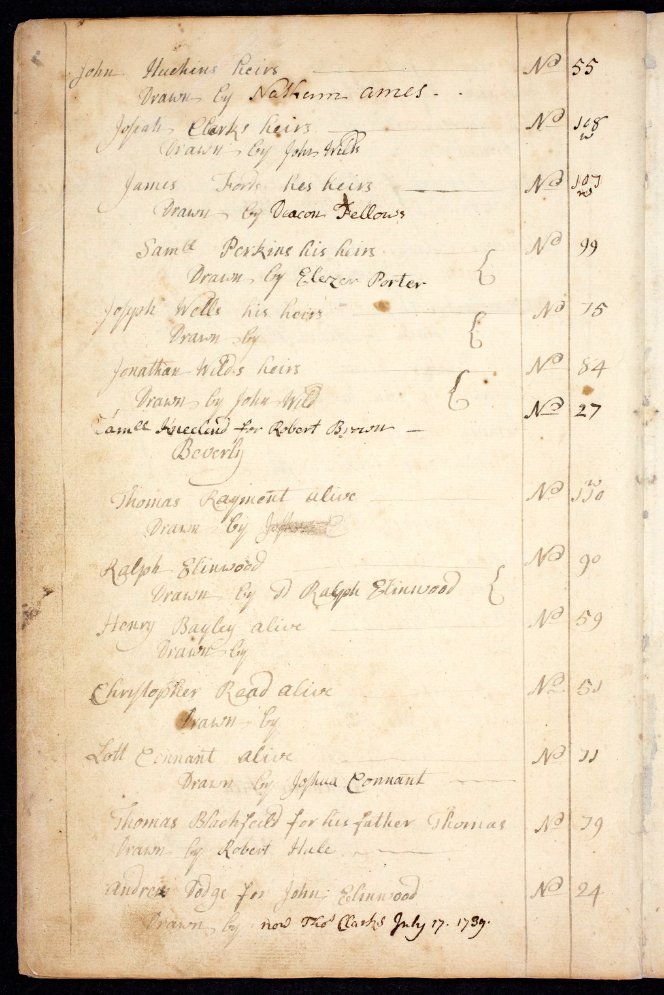 John Huckins heirs No 55
Drawn by Nathanll ames.
Josiah Clarks heirs No 108
Drawn by John Wild
James Fords hes heirs No 107
Drawn by Deacon Fellows
Samll Perkins his heirs No 99
Drawn by Elezer Porter
Joseph Wells his heirs No 75
Drawn by
Jonathan Wilds heirs No 84
Drawn by John Wild
Samll Kneeland for Robert Brown No 27
Beverly
Thomas Rayment alive No 110
Drawn by
Ralph Elinwood No 90
Drawn by Ralph Elinwood
Henry Bayley alive No 59
Drawn by
Christopher Read alive No 51
Drawn by
Lott Connant alive No 11
Drawn by Joshua Connant
Thomas Blachfeild for his father Thomas No 79
Drawn by Robert Hale
Andrew Dodge for John Elinwood No 24
Drawn by now Thos Clarks July 17. 1739.